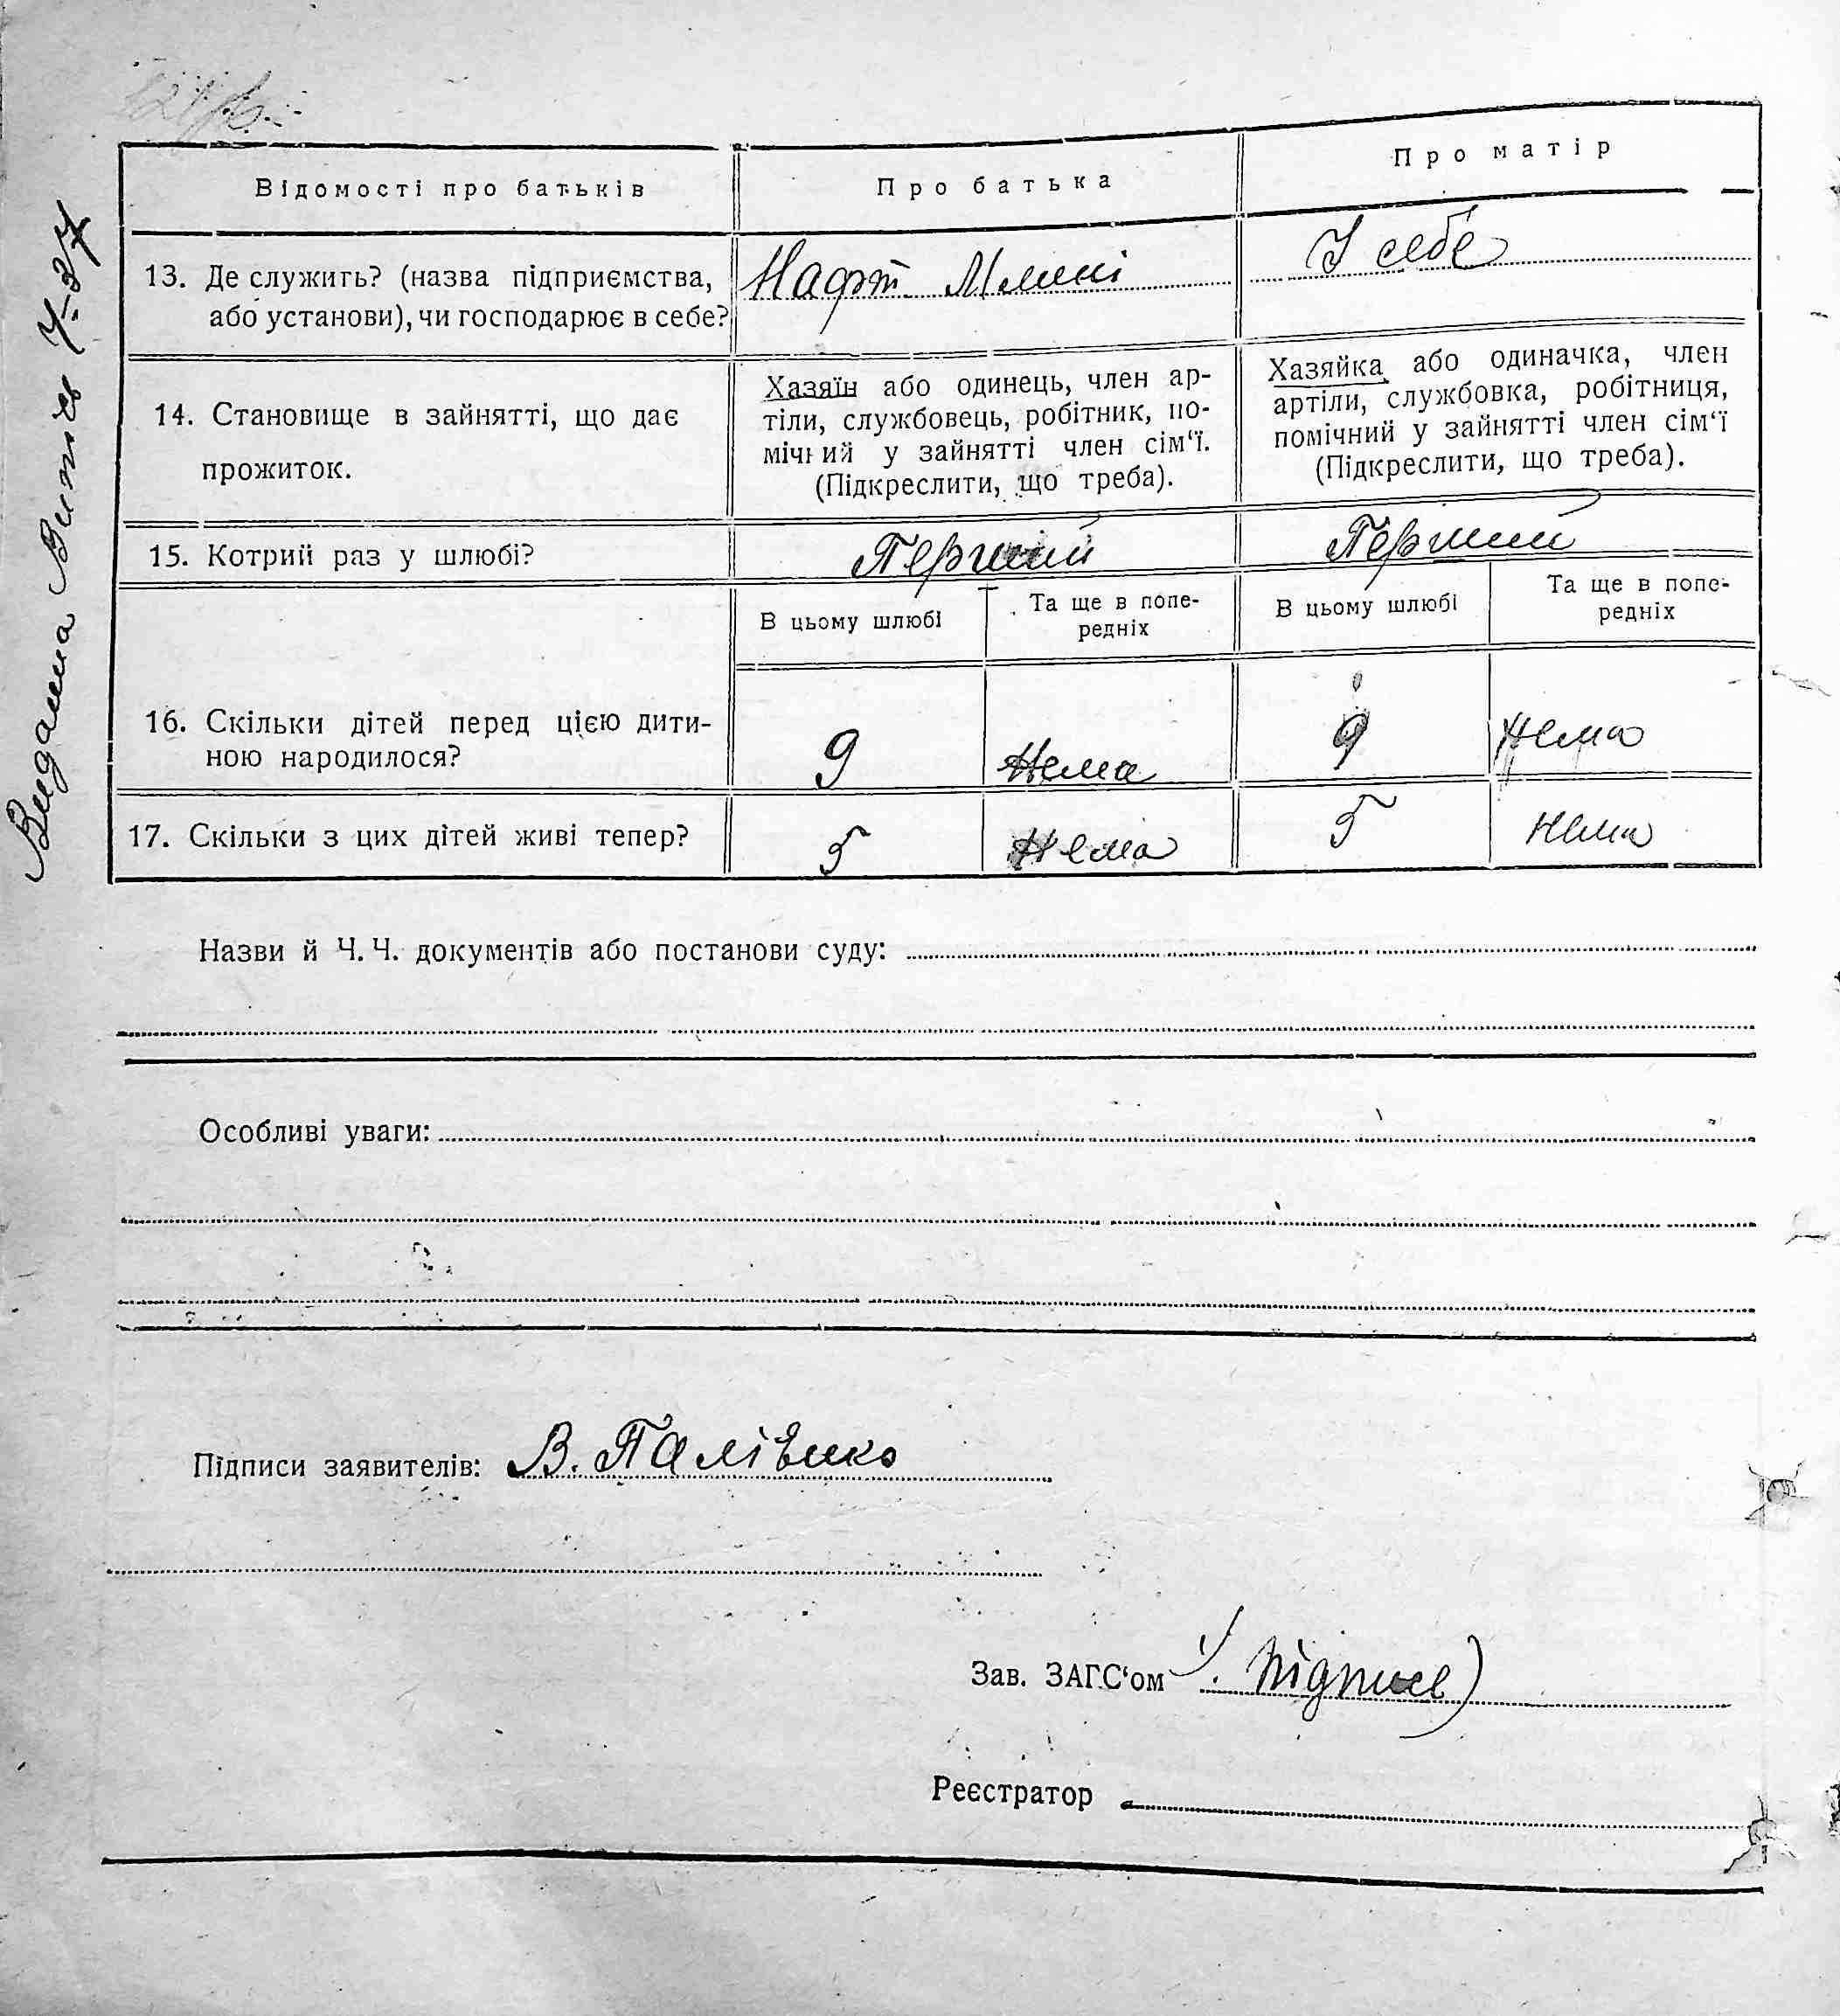 Відомості про батьків
Про батька
Про матір
13. Де служить? (назва підприємства,
або установи), чи господарює в себе?
Нафт. Млині
У себе
14. Становище в зайнятті, що дає
прожиток.
Хазяїн або одинець, член ар-
тіли, службовець, робітник, по-
мічний у зайнятті член сім‘ї.
(Підкреслити, що треба).
Хазяйка або одиначка, член
артіли, службовка, робітниця,
помічний у зайнятті член сім‘ї
(Підкреслити, що треба).
15. Котрий раз у шлюбі?
Перший
Перший
В цьому шлюбі
Та ще в попе-
редніх
В цьому шлюбі
Та ще в попе-
редніх
16. Скільки дітей перед цією дити-
ною народилося?
9
Нема
9
Нема
17. Скільки з цих дітей живі тепер?
5
Нема
5
Нема
Назви й Ч. Ч. документів або постанови суду:
Особливі уваги:
Підписи заявителів: В. Палівико
Зав. ЗАГС‘ом (. підписе)
Реєстратор
Видана Витяг